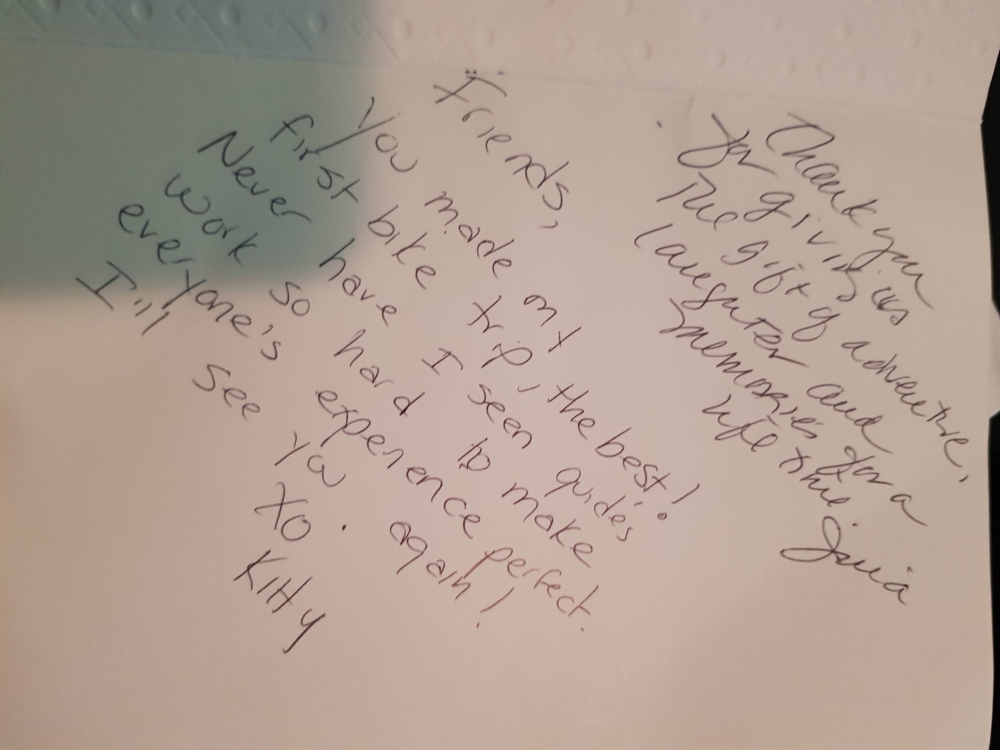 Friends,
You made my
first bike trip, the best!
Never have I seen guides
work so hard to make
everyone's experience perfect.
I'll see ya again!
XO.
Kitty
Thank you
for giving us
The gift of adventure,
laughter and
memories for a
life time